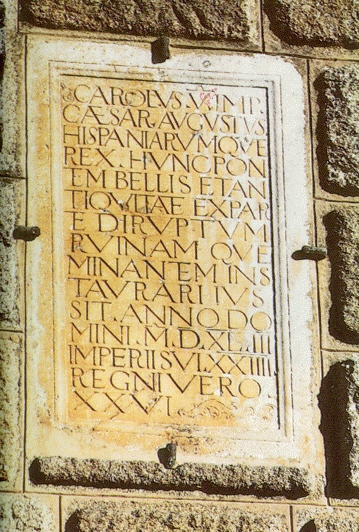 CAROLVS V IMP
CÆSAR AVGVSTVS
HISPANIARVMQVE
REX HVNC PON
TEM BELLIS ET AN
TIQVITATE EX PAR
E DIRVPTVM
RVINAM QVE
MINANTEM INS
TAVRARI IVS
SIT ANNO DO
MINI M.D.XL.III
IMPERII SVI XXIIII
REGNI VERO
XXVI